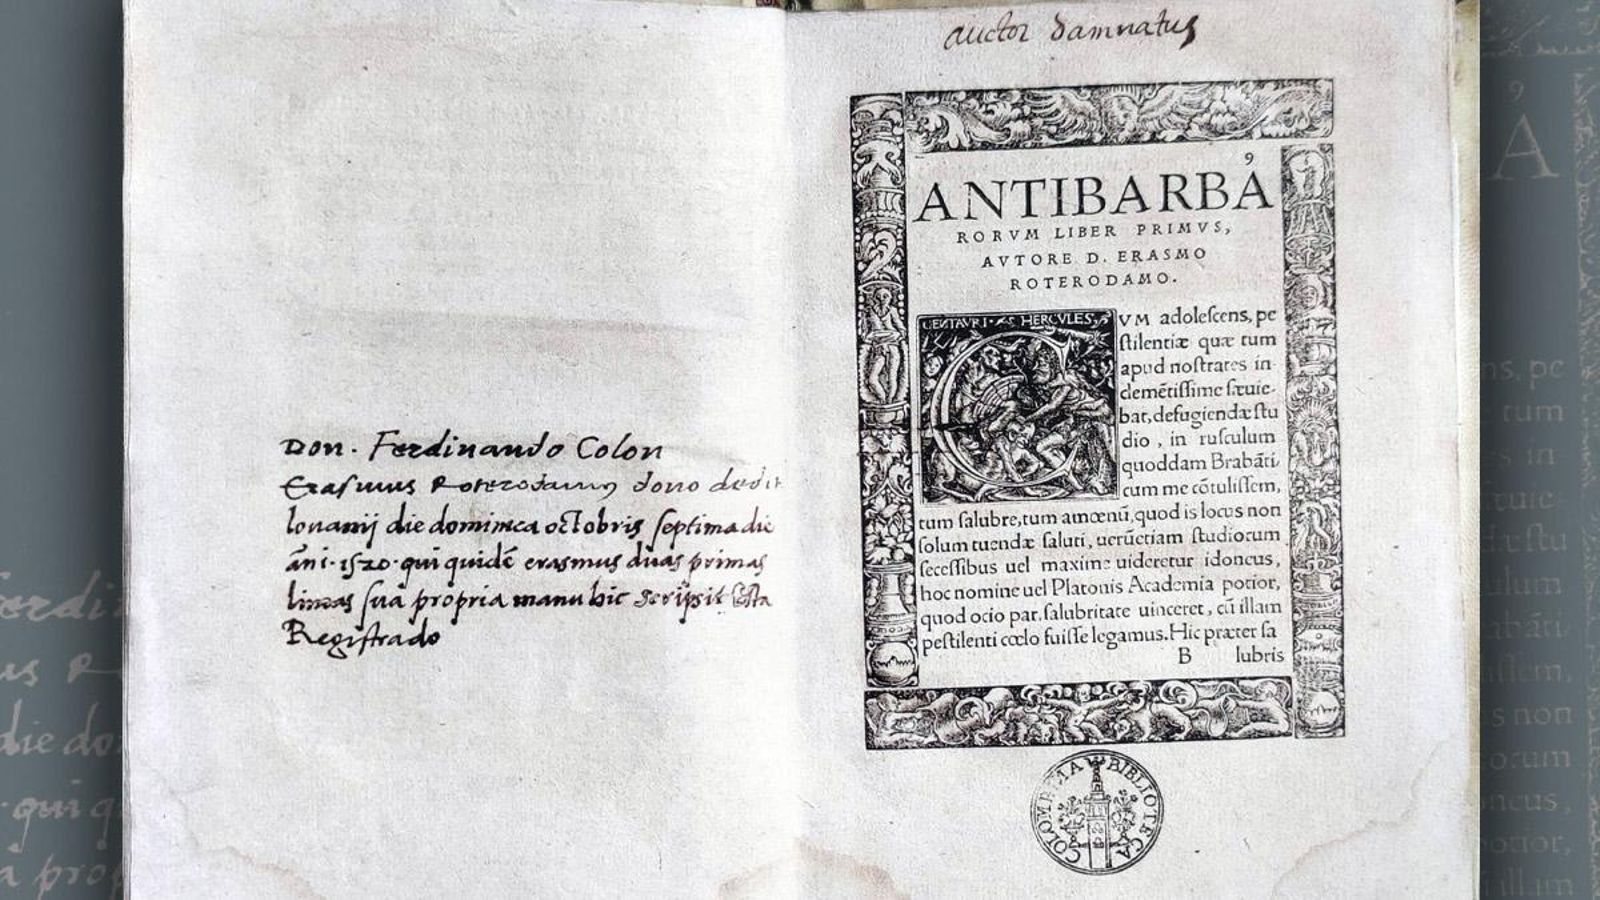 Don. Ferdinando Colon
Erasmus Roterodamus dono dedit
louanij die dominica octobris septima die
āni·1520·qui quidē erasmus duas primas
lineas sua propria manu hic scripsit Esta
Registrado
auctor damnatus
9
ANTIBARBA
RORVM LIBER PRIMVS,
AVTORE D. ERASMO
ROTERODAMO.
CENTAVRI HERCVLES
VM adoleſcens, pe
ſtilentiæ quæ tum
apud noſtrates in
clemētiſſime ſæuie-
bat, defugiendæ ſtu
dio, in ruſculum
quoddam Brabāti
cum me cōtuliſſem,
tum ſalubre, tum amœnū, quod is locus non
ſolum tuendæ ſaluti, uerūetiam ſtudiorum
ſeceſſibus uel maxime uideretur idoneus,
hoc nomine uel Platonis Academia potior,
quod ocio par, ſalubritate uinceret, cū illam
peſtilenti cœlo fuiſſe legamus. Hic præter ſa
B lubris
COLOMBINA BIBLIOTECA